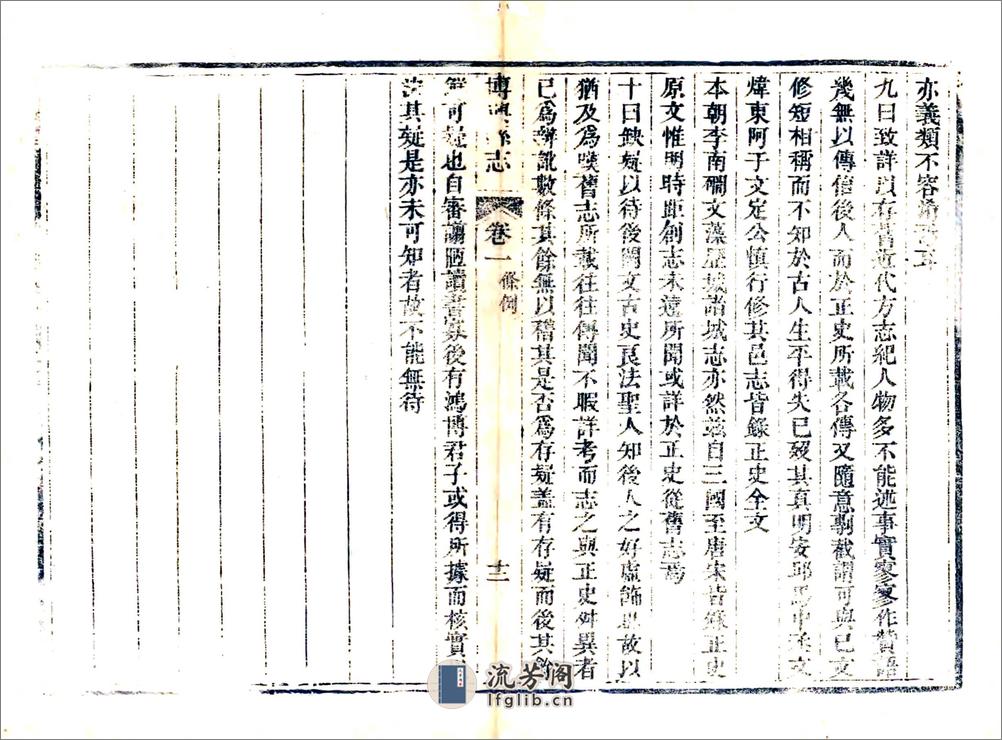 亦義類不容
九曰致詳以存舊近代方志紀人物多不能述事實寥寥作贊語
幾無以傳信後人而於正史所載各傳又隨意剪截謂可與已文
修短相稱而不知於古人生平得失已沒其真明安邱馬中丞文
煒東阿于文定公慎行修其邑志皆錄正史全文
本朝李南磵文藻歷城諸城志亦然茲自三國至唐宋皆錄正史
原文惟明時距創志未遠所聞或詳於正史從舊志焉
十曰缺疑以待後闕文古史良法聖人知後人之好虛飾也故以
猶及爲嘆舊志所載往往傳聞不暇詳考而志之與正史舛異者
已爲辨訛數條其餘無以稽其是否爲存疑蓋有存疑而後其餘
博興縣志
卷一
條例
十二
無可疑也自審謭陋讀書寡後有鴻博君子或得所據而核實
其疑是亦未可知者故不能無待
流芳阁
lfglib.cn